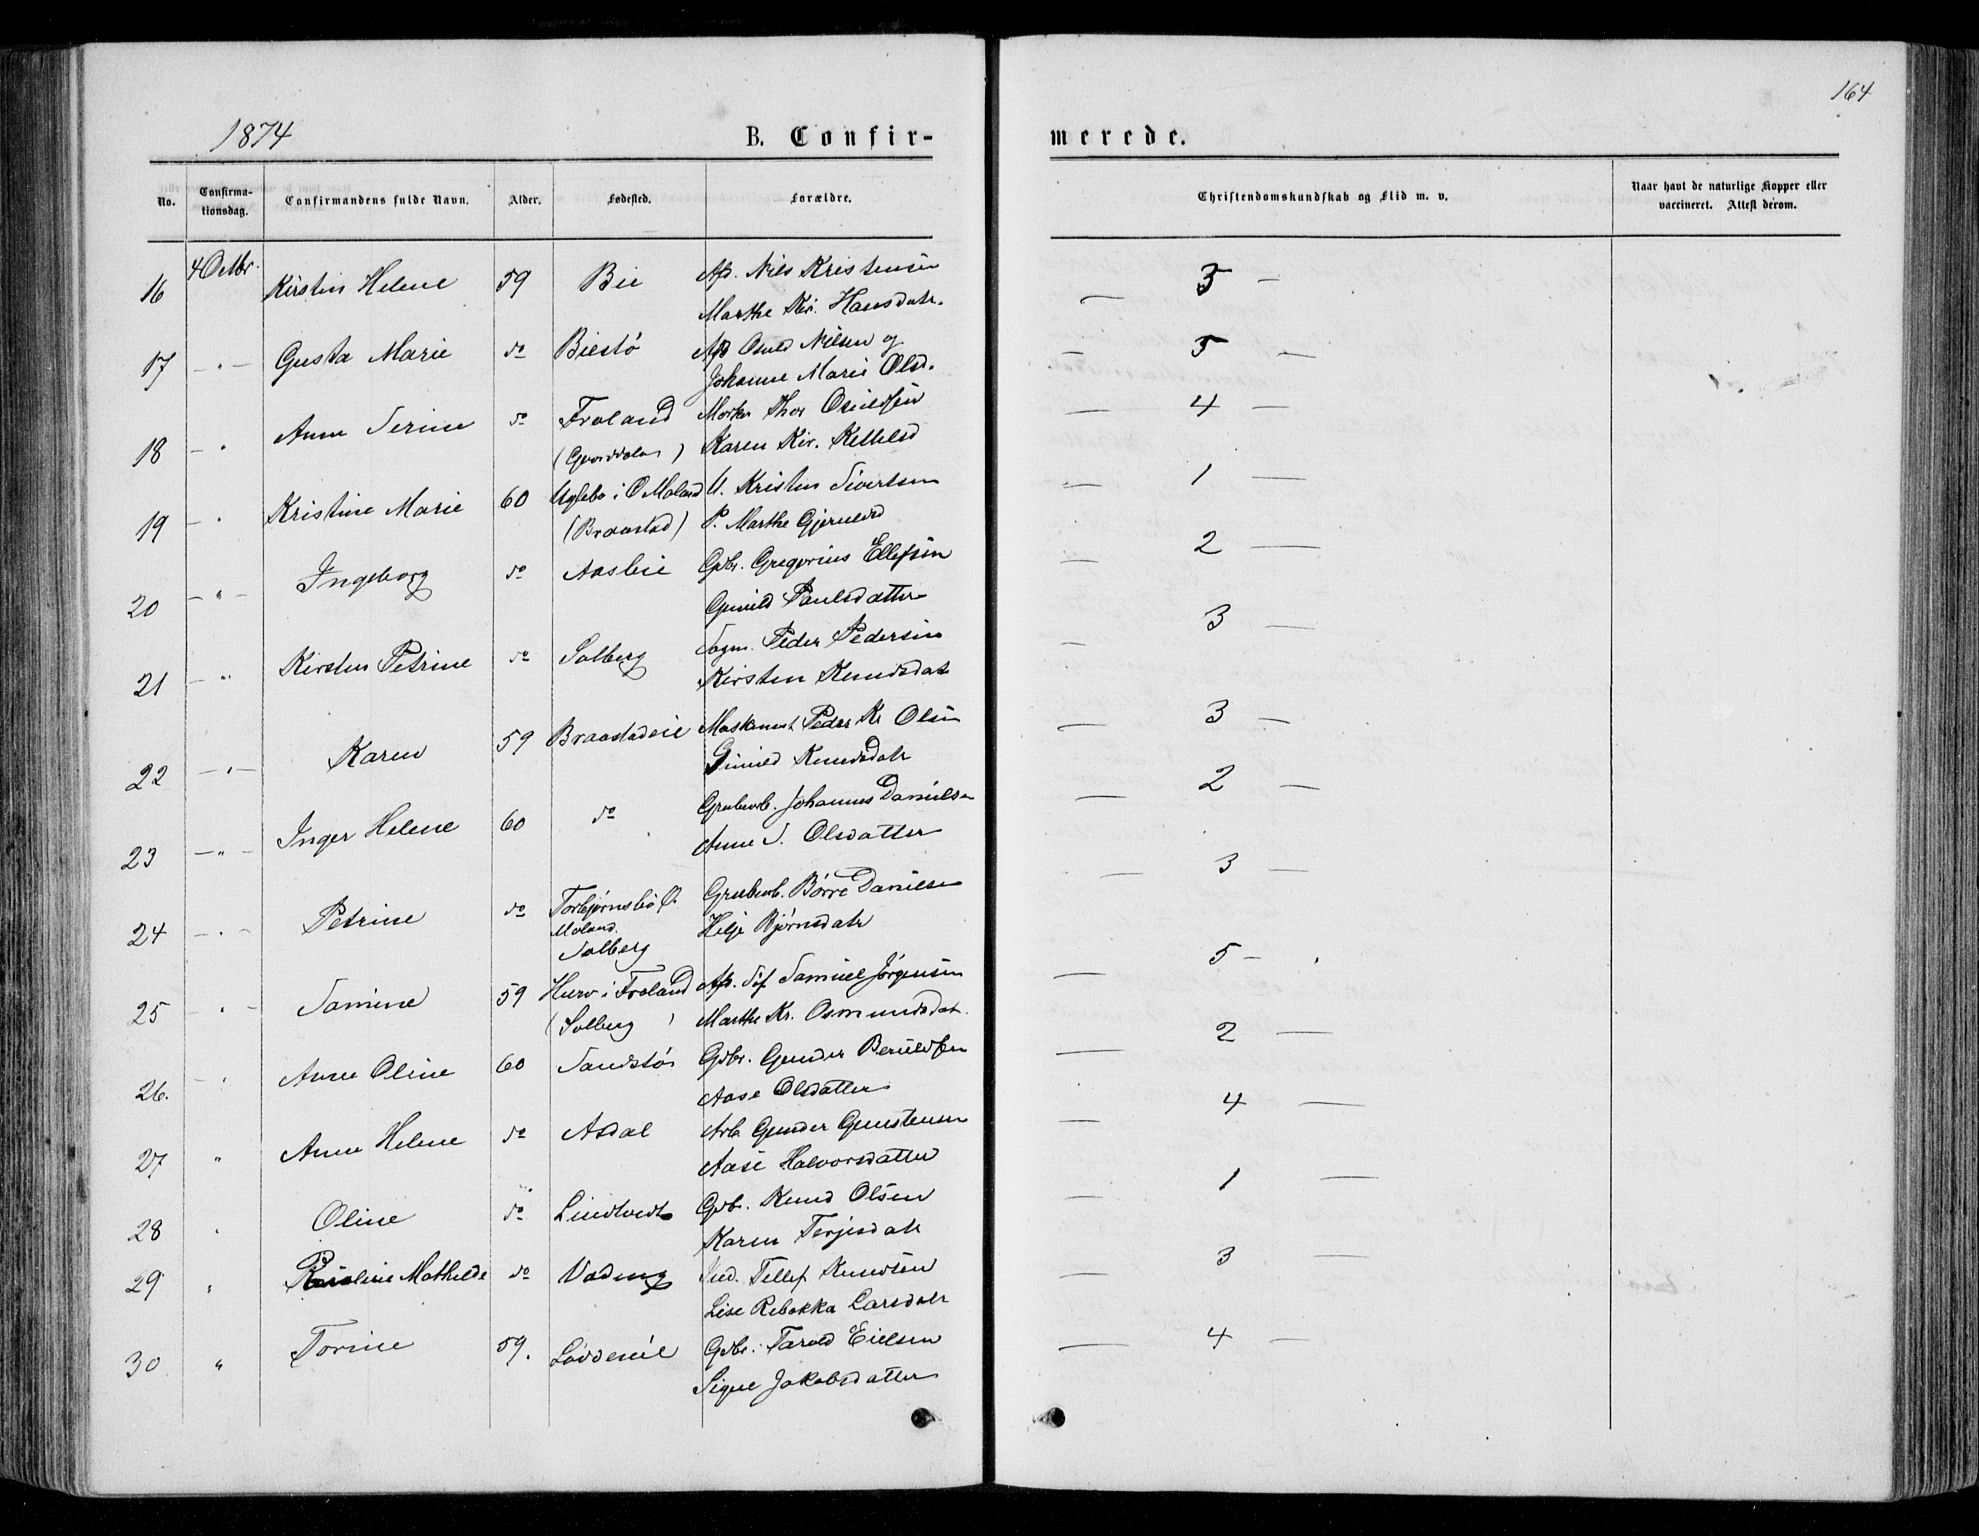 164
1874
B. Confir-
merede.
No. Confirma-tionsdag. Confirmandens fulde Navn. Alder. Fødested. Forældre. Christendomskundskab og Flid m. v. Naar havt de naturlige Kopper eller vaccineret. Attest derom.
16 4 Octbr. Kirstin Helene 59 Bie Afd. Nils Kristensen — 3 —
Marthe Kir. Hansdatr.
17 — " — Gusta Marie do Biestø Afd Osuld Nilsen og — 5 —
Johanne Marie Olsd.
18 — " Anne Serine do Froland Thor Osuldsen — 4 —
Karen Kir. Kittelsd
19 — " Kristine Marie 60 Uglebo i Ø Moland U. Kristen Sivertsen — 1 —
(Braastad) P. Marthe Gjeruldsd
20 — " — Ingeborg do Aasbie Gdbr. Gregorius Ellefsen — 2 —
Gunild Paulsdatter
21 — " Kirsten Petrine do Solberg Sagm. Peder Pedersen — 3 —
Kirsten Knudsdat
22 — " — Karen 59 Braastadeie Maskinmst Peder Kr Olsen — 3 —
Gunild Knudsdatr
23 — " — Inger Helene 60 do Grubearb. Johannes Danielsen — 2 —
Anne S. Olsdatter
24 — " — Petrine do Torbjørnsbø Ø. Grubearb. Børre Danielsen — 3 —
Moland. Hilje Bjørnsdatr
Solberg
25 — " — Samine 59 i Froland Afd. Søf. Samuel Jørgensen — 5 —
(Solberg) Marthe Kr. Osmundsdat.
26. — " Anne Oline 60 Sandstø Gdbr. Gunder Beruldsen — 2 —
Aase Olsdatter
27 " Anne Helene do Asdal Arb Gunder Gunstensen — 4 —
Aase Halvorsdatter
28 " Oline do Lindtvedt Gdbr. Knud Olsen — 1 —
Karen Terjesdatr
29 " Mathilde do Vading Tellef Knudsen — 3 —
Lise Rebekka Larsdatr
30 " Torine 59. Løddesøl Gdbr. Tarald Eielsen — 4 —
Signe Jakobsdatter